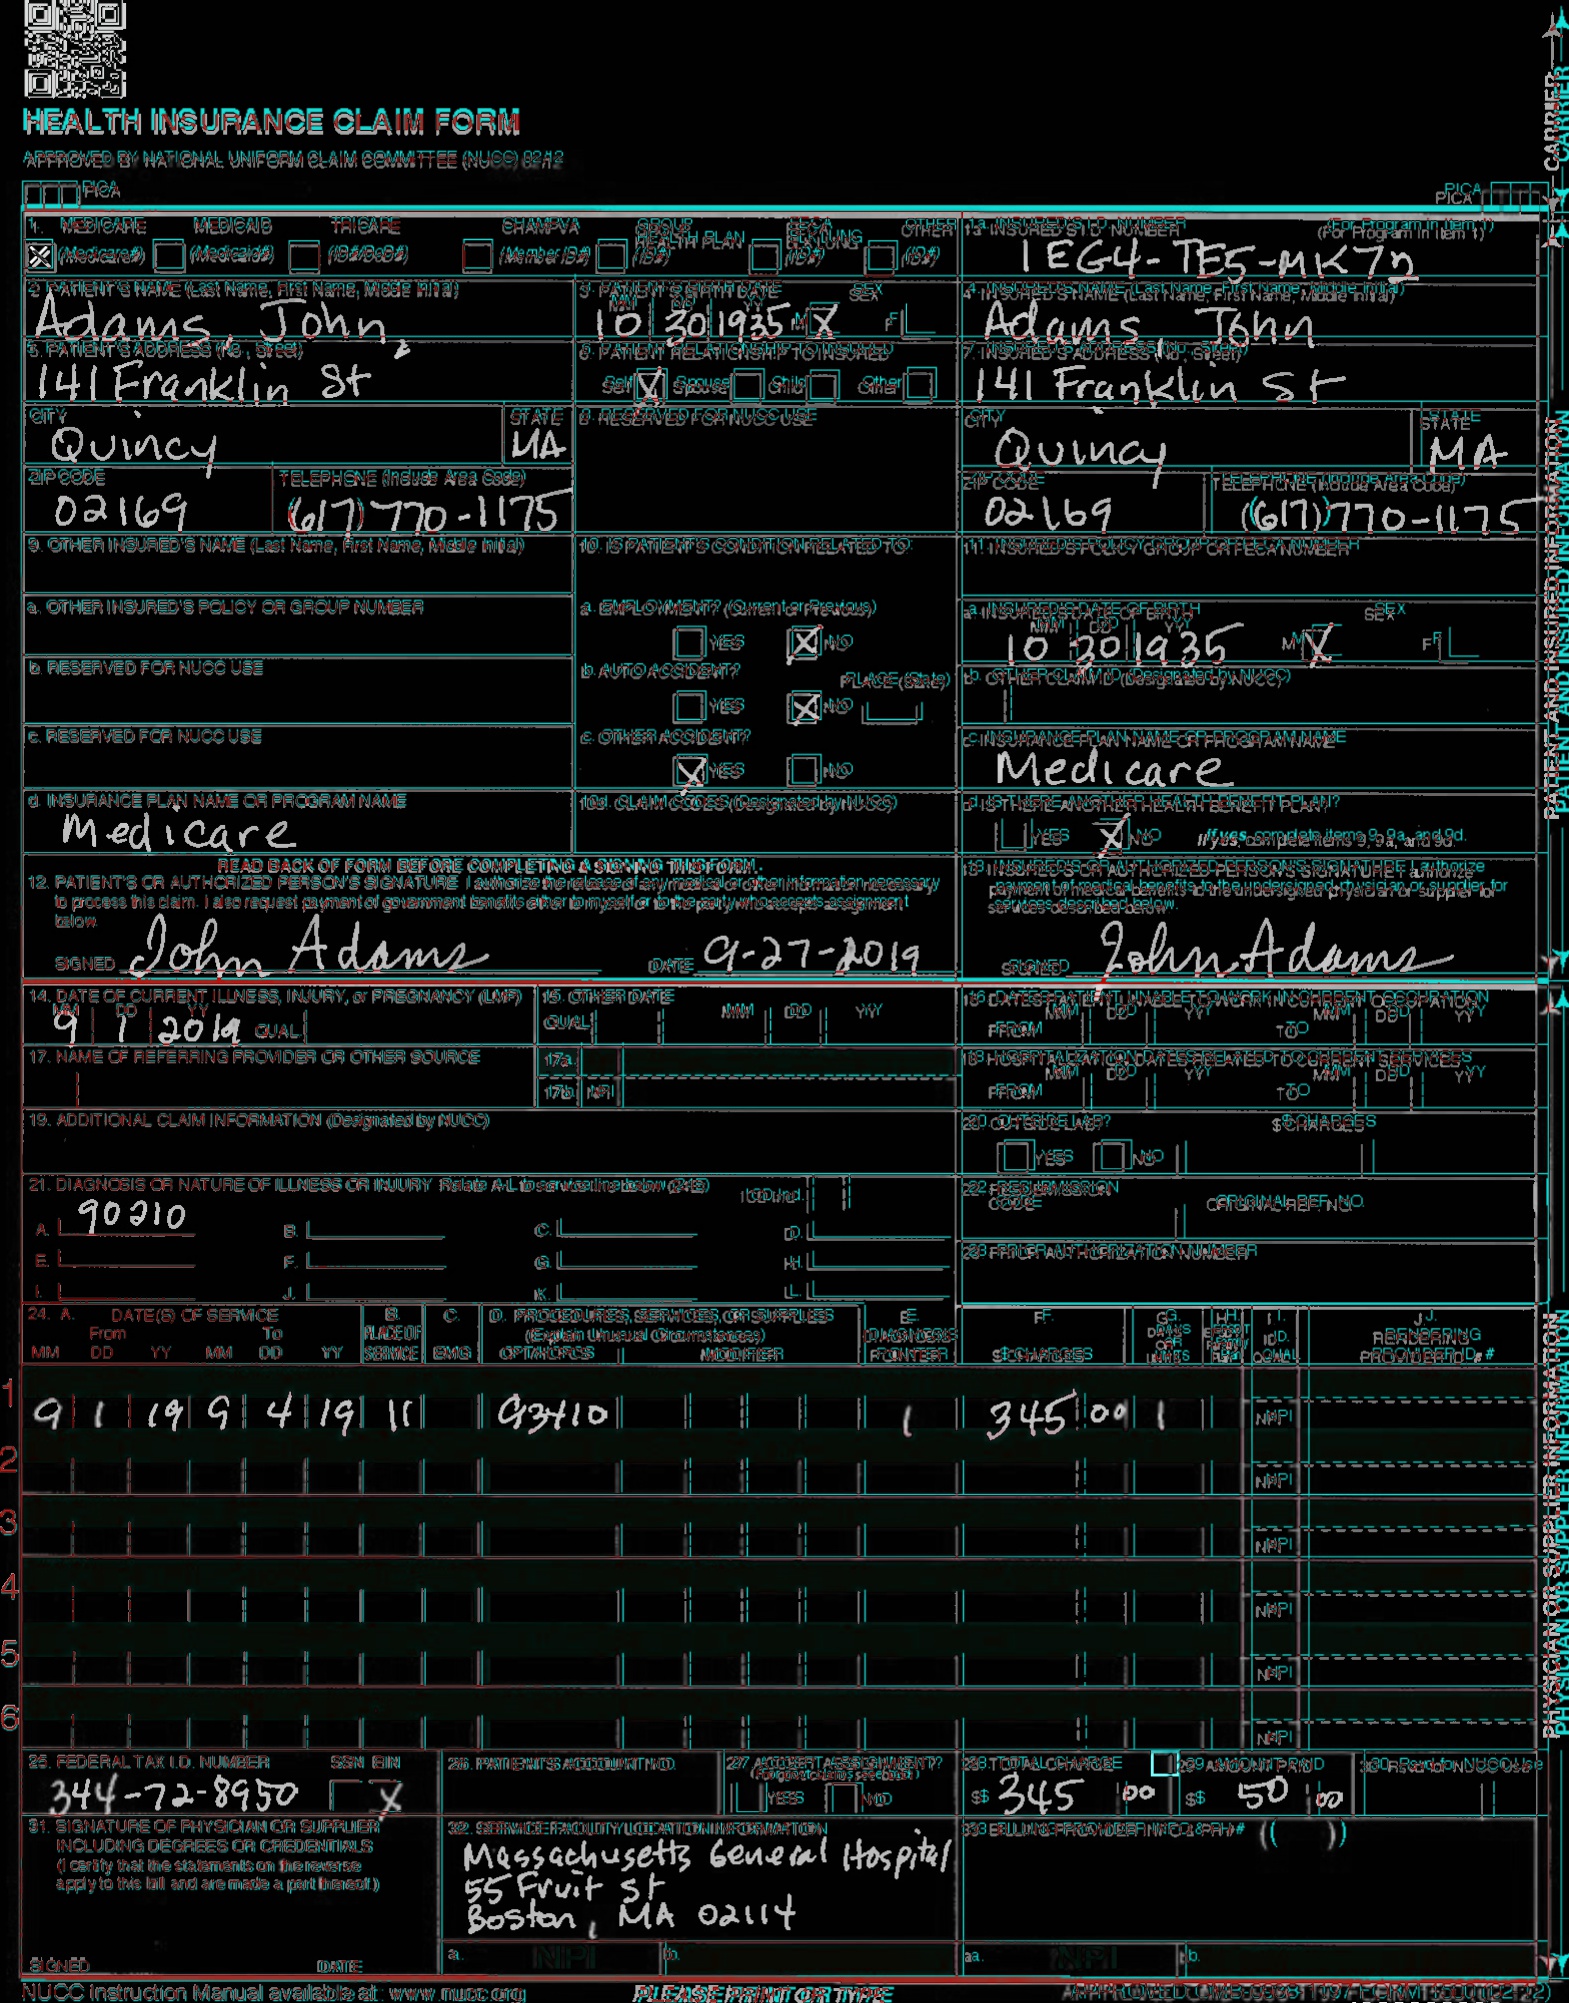 HEALTH INSURANCE CLAIM FORM
APPROVED BY NATIONAL UNIFORM CLAIM COMMITTEE (NUCC) 02/12
PICA
PICA
CARRIER
1. MEDICARE MEDICAID TRICARE CHAMPVA GROUP HEALTH PLAN FECA BLK LUNG OTHER
(Medicare#) (Medicaid#) (ID#/DoD#) (Member ID#) (ID#) (ID#) (ID#)
1a. INSURED'S I.D. NUMBER (For Program in Item 1)
1EG4-TE5-MK72
2. PATIENT'S NAME (Last Name, First Name, Middle Initial)
Adams, John,
3. PATIENT'S BIRTH DATE SEX
MM DD YY
10 30 1935 M X F
4. INSURED'S NAME (Last Name, First Name, Middle Initial)
Adams, John
5. PATIENT'S ADDRESS (No., Street)
141 Franklin St
6. PATIENT RELATIONSHIP TO INSURED
Self X Spouse Child Other
7. INSURED'S ADDRESS (No., Street)
141 Franklin St
CITY STATE
Quincy MA
8. RESERVED FOR NUCC USE
CITY STATE
Quincy MA
ZIP CODE TELEPHONE (Include Area Code)
02169 (617) 770-1175
ZIP CODE TELEPHONE (Include Area Code)
02169 (617) 770-1175
9. OTHER INSURED'S NAME (Last Name, First Name, Middle Initial)
10. IS PATIENT'S CONDITION RELATED TO:
11. INSURED'S POLICY GROUP OR FECA NUMBER
a. OTHER INSURED'S POLICY OR GROUP NUMBER
a. EMPLOYMENT? (Current or Previous)
YES X NO
a. INSURED'S DATE OF BIRTH SEX
MM DD YY
10 30 1935 M X F
b. RESERVED FOR NUCC USE
b. AUTO ACCIDENT? PLACE (State)
YES X NO
b. OTHER CLAIM ID (Designated by NUCC)
c. RESERVED FOR NUCC USE
c. OTHER ACCIDENT?
X YES NO
c. INSURANCE PLAN NAME OR PROGRAM NAME
Medicare
d. INSURANCE PLAN NAME OR PROGRAM NAME
Medicare
10d. CLAIM CODES (Designated by NUCC)
d. IS THERE ANOTHER HEALTH BENEFIT PLAN?
YES X NO If yes, complete items 9, 9a, and 9d.
READ BACK OF FORM BEFORE COMPLETING & SIGNING THIS FORM.
12. PATIENT'S OR AUTHORIZED PERSON'S SIGNATURE I authorize the release of any medical or other information necessary
to process this claim. I also request payment of government benefits either to myself or to the party who accepts assignment
below.
SIGNED John Adams DATE 9-27-2019
13. INSURED'S OR AUTHORIZED PERSON'S SIGNATURE I authorize
payment of medical benefits to the undersigned physician or supplier for
services described below.
SIGNED John Adams
PATIENT AND INSURED INFORMATION
14. DATE OF CURRENT ILLNESS, INJURY, or PREGNANCY (LMP)
MM DD YY
9 1 2019 QUAL.
15. OTHER DATE
QUAL. MM DD YY
16. DATES PATIENT UNABLE TO WORK IN CURRENT OCCUPATION
MM DD YY MM DD YY
FROM TO
17. NAME OF REFERRING PROVIDER OR OTHER SOURCE
17a.
17b. NPI
18. HOSPITALIZATION DATES RELATED TO CURRENT SERVICES
MM DD YY MM DD YY
FROM TO
19. ADDITIONAL CLAIM INFORMATION (Designated by NUCC)
20. OUTSIDE LAB? $ CHARGES
YES NO
21. DIAGNOSIS OR NATURE OF ILLNESS OR INJURY Relate A-L to service line below (24E)
ICD Ind.
A. 90210 B. C. D.
E. F. G. H.
I. J. K. L.
22. RESUBMISSION CODE ORIGINAL REF. NO.
23. PRIOR AUTHORIZATION NUMBER
24. A. DATE(S) OF SERVICE B. C. D. PROCEDURES, SERVICES, OR SUPPLIES E. F. G. H. I. J.
From To PLACE OF (Explain Unusual Circumstances) DIAGNOSIS DAYS OR UNITS ID. RENDERING
MM DD YY MM DD YY SERVICE EMG CPT/HCPCS MODIFIER POINTER $ CHARGES QUAL. PROVIDER ID. #
1
9 1 19 9 4 19 11 93410 1 345 00 1 NPI
2
NPI
3
NPI
4
NPI
5
NPI
6
NPI
25. FEDERAL TAX I.D. NUMBER SSN EIN
344-72-8950 X
26. PATIENT'S ACCOUNT NO.
27. ACCEPT ASSIGNMENT?
(For govt. claims, see back)
YES NO
28. TOTAL CHARGE
$ 345 00
29. AMOUNT PAID
$ 50 00
30. Rsvd for NUCC Use
31. SIGNATURE OF PHYSICIAN OR SUPPLIER
INCLUDING DEGREES OR CREDENTIALS
(I certify that the statements on the reverse
apply to this bill and are made a part thereof.)
SIGNED DATE
32. SERVICE FACILITY LOCATION INFORMATION
Massachusetts General Hospital
55 Fruit St
Boston, MA 02114
a. NPI b.
33. BILLING PROVIDER INFO & PH # ( )
a. NPI b.
PHYSICIAN OR SUPPLIER INFORMATION
NUCC Instruction Manual available at: www.nucc.org
PLEASE PRINT OR TYPE